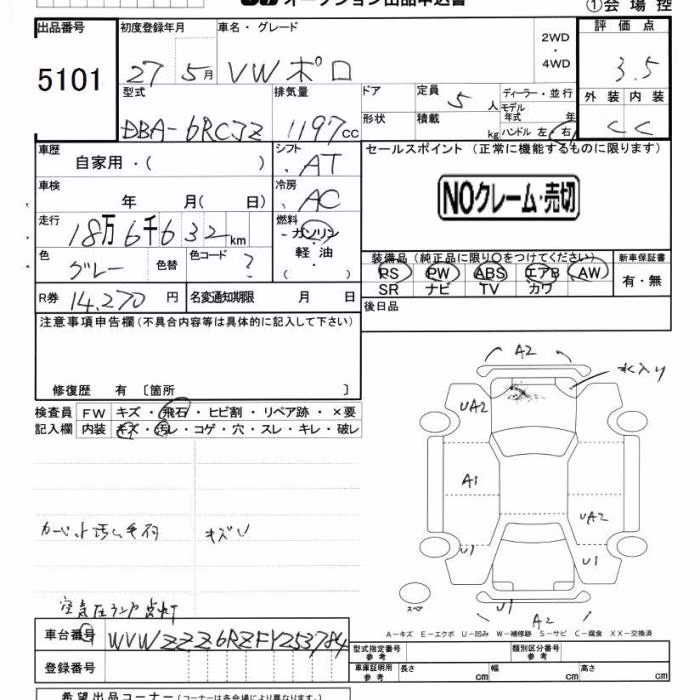 オークション出品申込書
①会場控
出品番号 初度登録年月 車名・グレード 2WD・4WD 評価点
5101 27 5月 VW ポロ 3.5
型式 排気量 ドア 定員 5人 ディーラー・並行
外装 内装
DBA-6RCJZ 1197cc 形状 積載 kg モデル年式 年
ハンドル 左 右 C C
車歴 自家用・( ) シフト AT セールスポイント (正常に機能するものに限ります)
車検 年 月(日) 冷房 AC
NOクレーム・売切
走行 18万6千632km 燃料 ガソリン・軽油・( )
色 グレー 色替 色コード ?
装備品 (純正品に限り○をつけてください) 新車保証書
PS PW ABS エアB AW 有・無
SR ナビ TV カワ
R券 14,270円 名変通知期限 月 日
後日品
注意事項申告欄 (不具合内容等は具体的に記入して下さい)
修復歴 有 〔箇所 〕
検査員 FW キズ・飛石・ヒビ割・リペア跡・×要
記入欄 内装 キズ・汚レ・コゲ・穴・スレ・キレ・破レ
A2
水入り
UA2
A1
UA2
U1
U1
カーペット汚レ毛羽 キズU
空気圧ランプ点灯
スペア
U1 A2
A-キズ E-エクボ U-凹み W-補修跡 S-サビ C-腐食 XX-交換済
車台番号 WVWZZZ6RZFY253784
型式指定番号 参考 類別区分番号 参考
登録番号
車庫証明用 参考 長さ cm 幅 cm 高さ cm
希望出品コーナー (コーナーは各会場により異なります。)